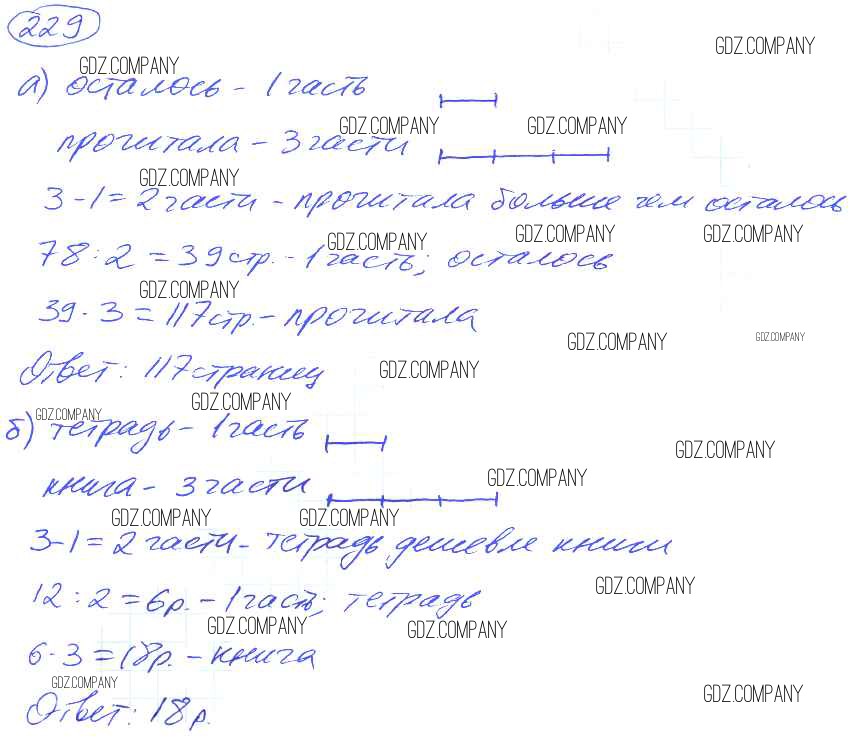 229
GDZ.COMPANY
GDZ.COMPANY
а) осталось - 1 часть
GDZ.COMPANY GDZ.COMPANY
прочитала - 3 части
GDZ.COMPANY
3-1=2 части - прочитала больше чем осталось
GDZ.COMPANY GDZ.COMPANY GDZ.COMPANY
78:2=39 стр. - 1 часть; осталось
GDZ.COMPANY
39·3=117 стр. - прочитала
GDZ.COMPANY GDZ.COMPANY
Ответ: 117 страниц
GDZ.COMPANY
GDZ.COMPANY
GDZ.COMPANY
б) тетрадь - 1 часть
GDZ.COMPANY
книга - 3 части
GDZ.COMPANY
GDZ.COMPANY GDZ.COMPANY
3-1=2 части - тетрадь дешевле книги
GDZ.COMPANY
12:2=6р. - 1 часть; тетрадь
GDZ.COMPANY GDZ.COMPANY
6·3=18р. - книга
GDZ.COMPANY
GDZ.COMPANY
Ответ: 18р.